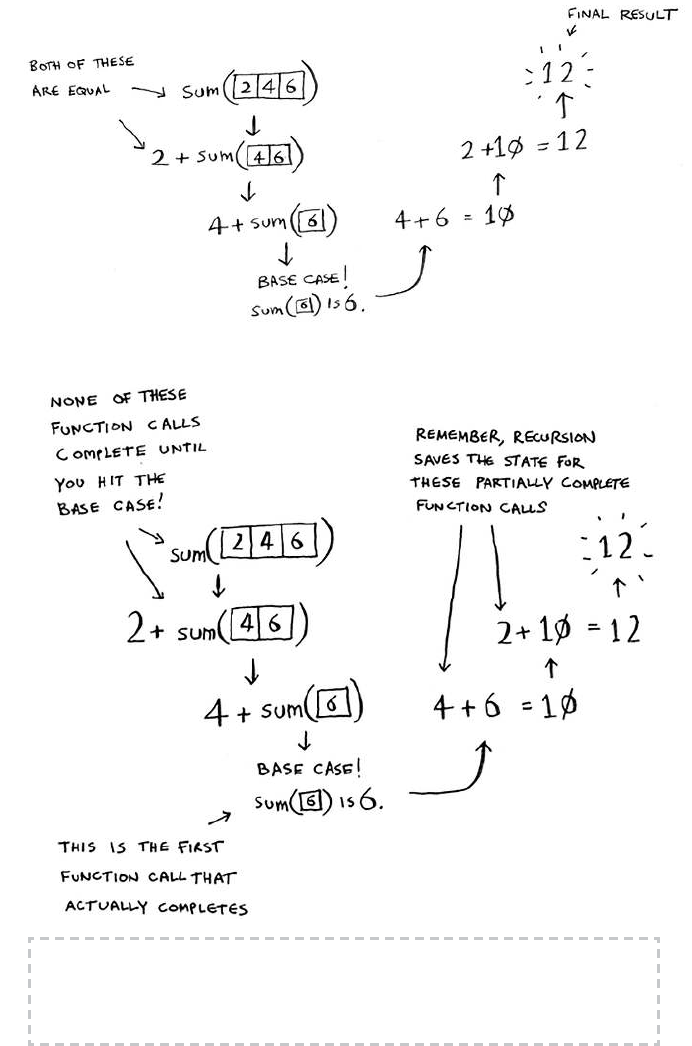 FINAL RESULT
12
BOTH OF THESE
ARE EQUAL
sum(2 4 6)
2 + sum(4 6)
2 + 10 = 12
4 + sum(6)
4 + 6 = 10
BASE CASE!
sum(6) IS 6.
NONE OF THESE
FUNCTION CALLS
COMPLETE UNTIL
YOU HIT THE
BASE CASE!
REMEMBER, RECURSION
SAVES THE STATE FOR
THESE PARTIALLY COMPLETE
FUNCTION CALLS
sum(2 4 6)
12
2 + sum(4 6)
2 + 10 = 12
4 + sum(6)
4 + 6 = 10
BASE CASE!
sum(6) IS 6.
THIS IS THE FIRST
FUNCTION CALL THAT
ACTUALLY COMPLETES